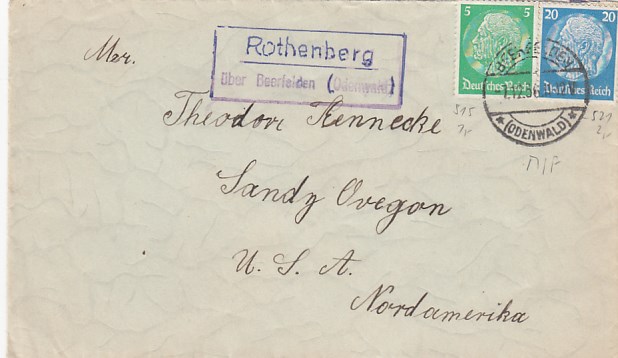 5 5
20 20
Deutsches Reich
Deutsches Reich
(ODENWALD)
Rothenberg
über Beerfelden (Odenwald)
Mer.
Theodor Hennecke
Sandy Oregon
U. S. A.
Nordamerika
515
521
M/F